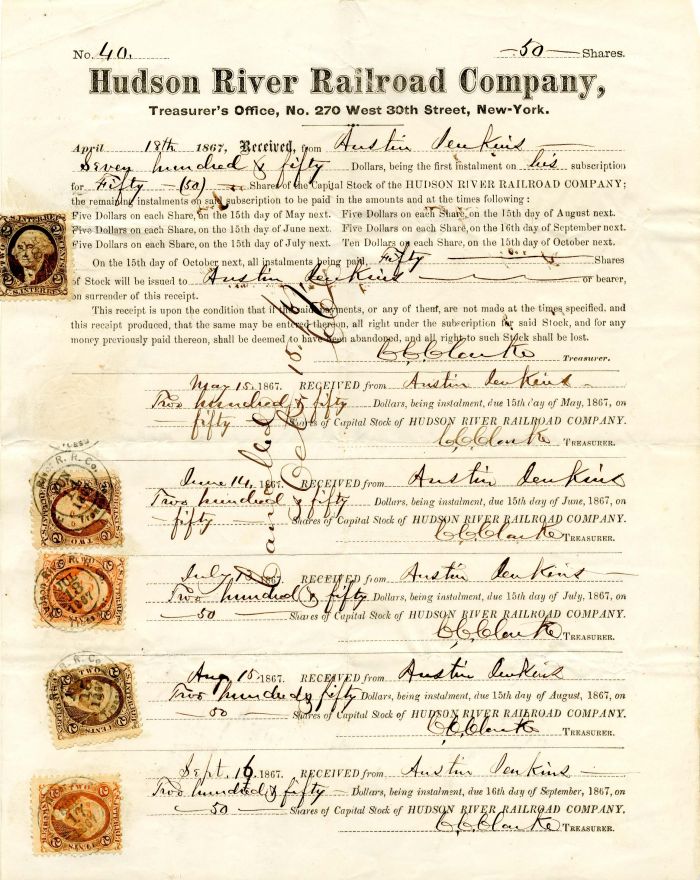 No. 40. 50 Shares.
Hudson River Railroad Company,
Treasurer's Office, No. 270 West 30th Street, New-York.
April 18th 1867, Received, from Austin Jenkins
Seven hundred & fifty Dollars, being the first instalment on his subscription
for Fifty (50) Shares of the Capital Stock of the HUDSON RIVER RAILROAD COMPANY;
the remaining instalments on said subscription to be paid in the amounts and at the times following:
Five Dollars on each Share, on the 15th day of May next. Five Dollars on each Share, on the 15th day of August next.
Five Dollars on each Share, on the 15th day of June next. Five Dollars on each Share, on the 16th day of September next.
Five Dollars on each Share, on the 15th day of July next. Ten Dollars on each Share, on the 15th day of October next.
On the 15th day of October next, all instalments being paid, Fifty Shares
of Stock will be issued to Austin Jenkins or bearer,
on surrender of this receipt.
This receipt is upon the condition that if the said payments, or any of them, are not made at the times specified, and
this receipt produced, that the same may be entered thereon, all right under the subscription for said Stock, and for any
money previously paid thereon, shall be deemed to have been abandoned, and all right to such Stock shall be lost.
C C Clarke Treasurer.
May 15. 1867. RECEIVED from Austin Jenkins
Two hundred & fifty Dollars, being instalment, due 15th day of May, 1867, on
fifty Shares of Capital Stock of HUDSON RIVER RAILROAD COMPANY.
C C Clarke TREASURER.
June 14, 1867. RECEIVED from Austin Jenkins
Two hundred & fifty Dollars, being instalment, due 15th day of June, 1867, on
fifty Shares of Capital Stock of HUDSON RIVER RAILROAD COMPANY.
C C Clarke TREASURER.
July 15 1867. RECEIVED from Austin Jenkins
Two hundred & fifty Dollars, being instalment, due 15th day of July, 1867, on
50 Shares of Capital Stock of HUDSON RIVER RAILROAD COMPANY.
C C Clarke TREASURER.
Aug 15. 1867. RECEIVED from Austin Jenkins
Two hundred & fifty Dollars, being instalment, due 15th day of August, 1867, on
50 Shares of Capital Stock of HUDSON RIVER RAILROAD COMPANY.
C C Clarke TREASURER.
Sept. 16. 1867. RECEIVED from Austin Jenkins
Two hundred & fifty Dollars, being instalment, due 16th day of September, 1867, on
50 Shares of Capital Stock of HUDSON RIVER RAILROAD COMPANY.
C C Clarke TREASURER.
Cancelled Oct 15. 67